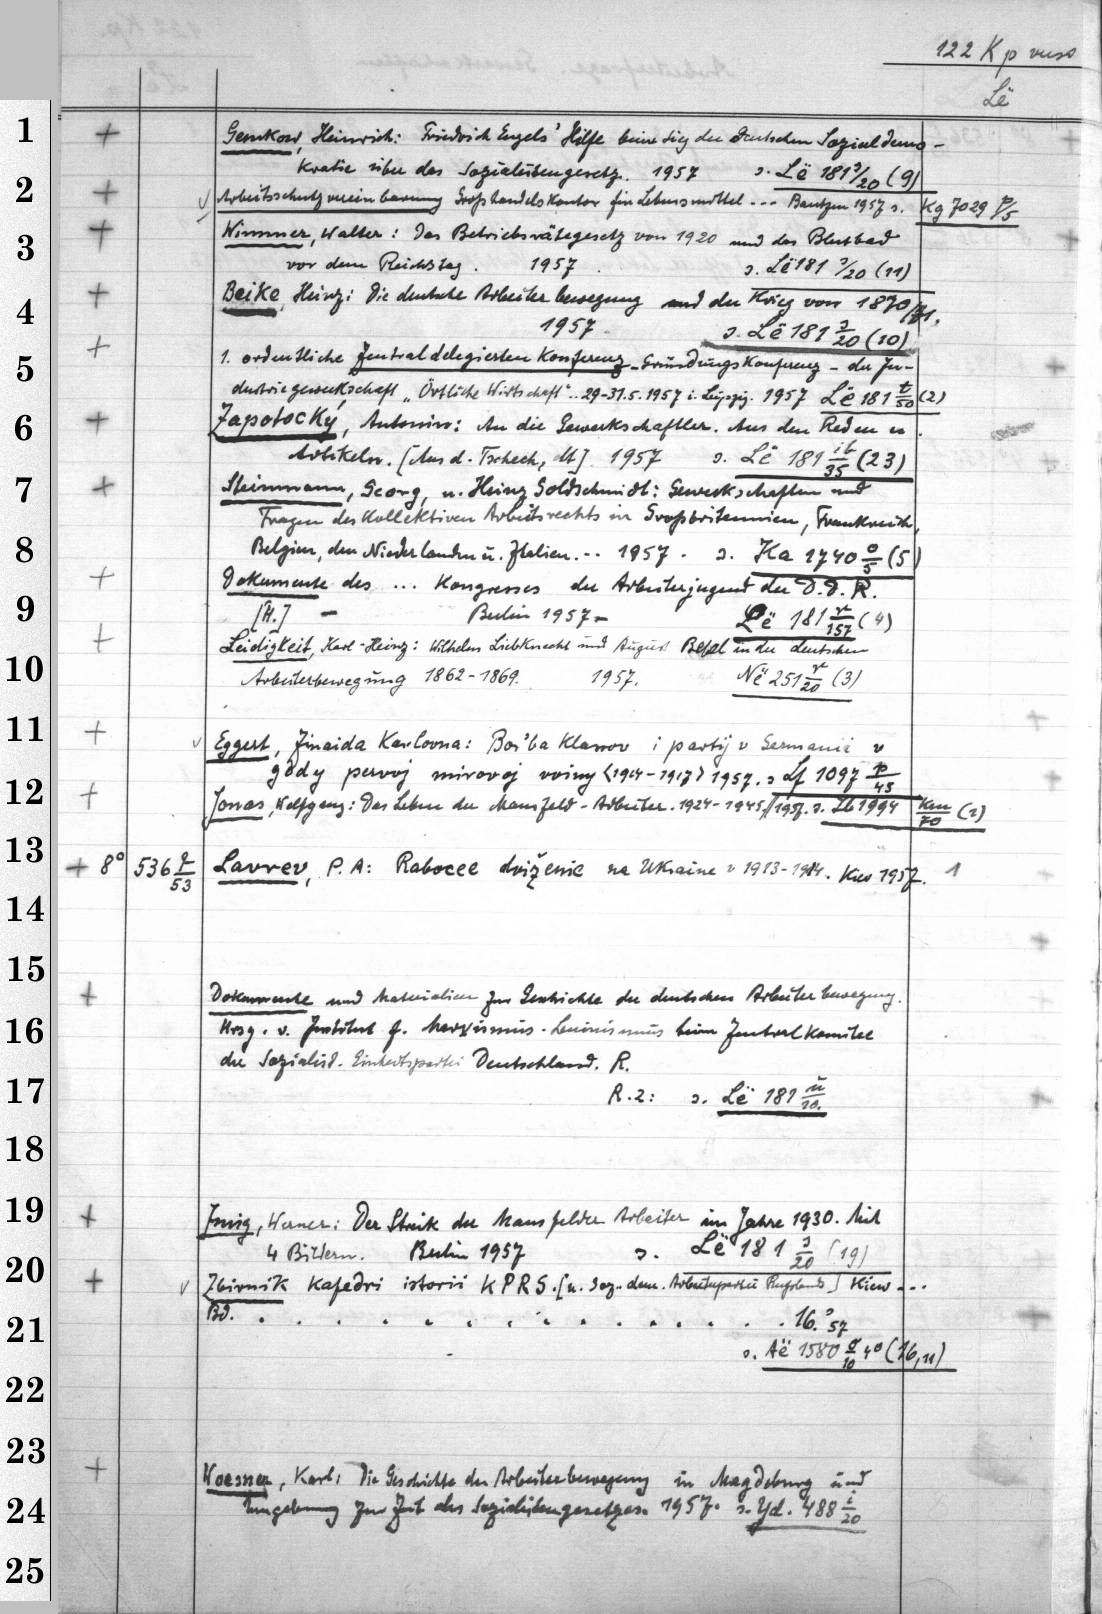 122 Kp
Lë
1 + Gemkow, Heinrich: Friedrich Engels' Hilfe beim Sieg der deutschen Sozialdemo-
kratie über das Sozialistengesetz. 1957 s. Lë 181 3/20 (9)
2 + Arbeitsschutzvereinbarung Großhandelskontor für Lebensmittel --- Bautzen 1957 s. Kg 7029 P/5
3 + Wimmer, Walter: Das Betriebsrätegesetz von 1920 und das Blutbad
vor dem Reichstag. 1957. s. Lë 181 3/20 (11)
4 + Beike, Heinz: Die deutsche Arbeiterbewegung und der Krieg von 1870/71.
1957. s. Lë 181 3/20 (10)
5 + 1. ordentliche Zentraldelegiertenkonferenz - Gründungskonferenz - der In-
dustriegewerkschaft „Örtliche Wirtschaft". 29-31.5.1957 i. Leipzig. 1957 Lë 181 t/50 (2)
6 + Zapotocký, Antonin: An die Gewerkschaftler. Aus den Reden u.
Artikeln. [Aus d. Tschech, dt.] 1957 s. Lë 181 ib/35 (23)
7 + Steinmann, Georg, u. Heinz Goldschmidt: Gewerkschaften und
Fragen des Kollektiven Arbeitsrechts in Grossbritannien, Frankreich,
8 Belgien, den Niederlanden u. Italien. -- 1957. s. Ka 1740 o/5 (5)
+ Dokumente des ... Kongresses der Arbeiterjugend der D.D.R.
9 [H.] - Berlin 1957 - Lë 181 r/157 (4)
+ Leidigkeit, Karl-Heinz: Wilhelm Liebknecht und August Bebel in der deutschen
10 Arbeiterbewegung 1862-1869. 1957. Në 251 r/20 (3)
11 + Eggert, Zinaida Karlovna: Bor'ba klassov i partij v Germanii v
gody pervoj mirovoj vojny <1914-1917> 1957. s. Lf 1097 p/45
12 + Jonas, Wolfgang: Das Leben der Mansfeld-Arbeiter. 1924-1945. 1957. s. Lb 1994 km/70 (2)
13 + 8° 536 q/53 Lavrev, P. A: Rabocee dviženie na Ukraine v 1913-1914. Kiev 1957. 1
14
15
+ Dokumente und Materialien zur Geschichte der deutschen Arbeiterbewegung.
16 Hrsg. v. Institut f. Marxismus-Leninismus beim Zentralkomitee
der Sozialist. Einheitspartei Deutschland. R.
17 R. 2: s. Lë 181 ü/10.
18
19 + Imig, Werner: Der Streik der Mansfelder Arbeiter im Jahre 1930. Mit
4 Bildern. Berlin 1957 s. Lë 181 3/20 (19)
20 + Zbirnik kafedri istorii KPRS. [u. Soz.-dem. Arbeiterpartei Russlands] Kiew ---
21 Bd. . . . . . . . . . . . . . . . 16. 57
s. Aë 1580 o/10 4° (16, 11)
22
23
+ Woesner, Karl: Die Geschichte der Arbeiterbewegung in Magdeburg und
24 Umgebung zur Zeit des Sozialistengesetzes. 1957. s. Yd. 488 i/20
25